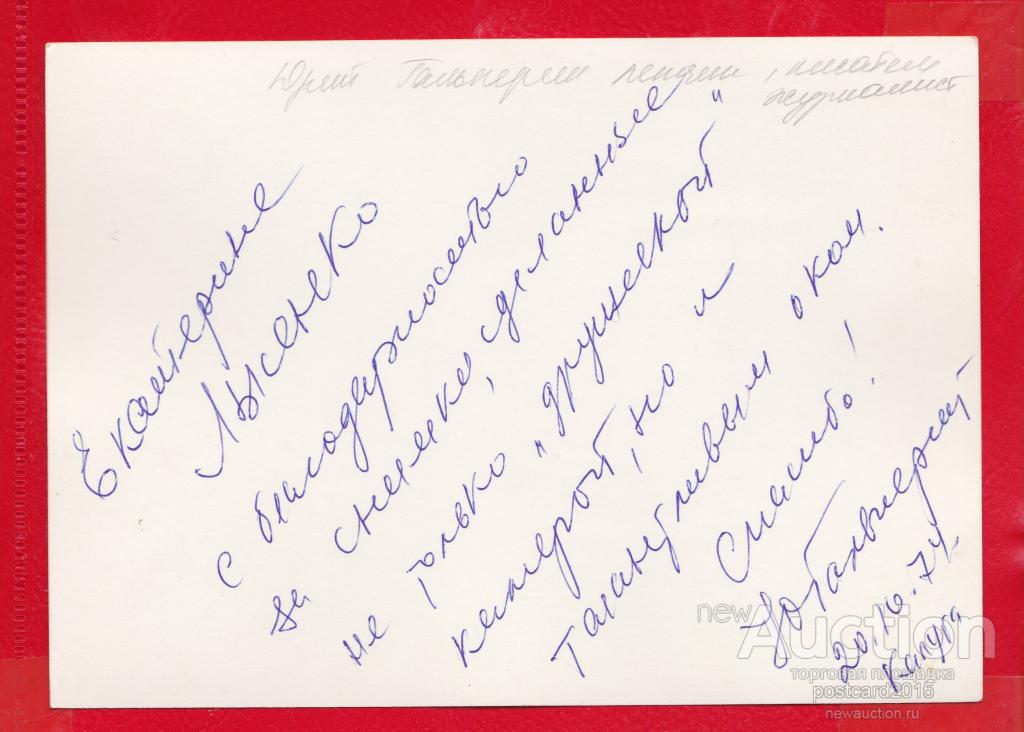 Юрий Гальперин , писатель
журналист
Екатерине
Лысенко
с благодарностью
за снимки, сделанные
не только „дружеской"
камерой, но и
талантливым оком.
Спасибо!
ЮГальперин
20.10.74.
Калуга
newAuction
торговая площадка
postcard2015
newauction.ru